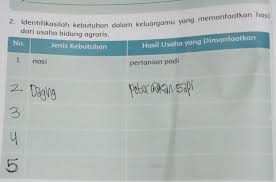 2. Identifikasilah kebutuhan dalam keluargamu yang memanfaatkan hasil
dari usaha bidang agraris.
No. Jenis Kebutuhan Hasil Usaha yang Dimanfaatkan
1. nasi pertanian padi
2 Daging sapi
3
4
5